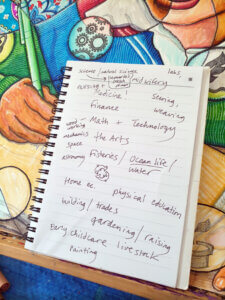 science / natural science labs
midwifery
nursing +
medicine
sewing,
weaving
Finance
Math + Technology
wood
working
mechanics
the Arts
space
astronomy
Fisheries / Ocean life /
water
Home ec.
physical education
building / trades
gardening / raising
livestock
Early childcare
Painting